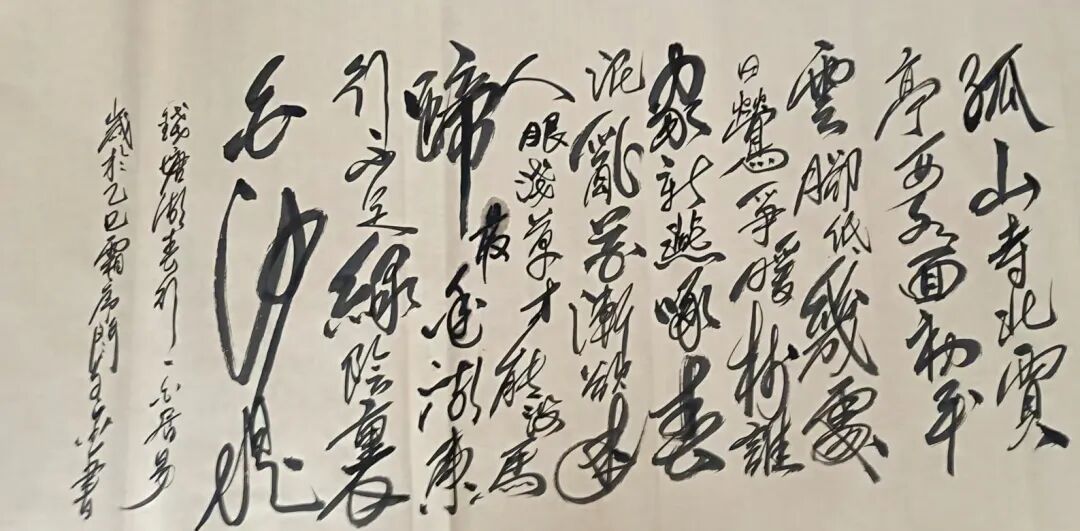 孤山寺北賈
亭西水面初平
雲腳低幾處
早鶯爭暖樹誰
家新燕啄春
泥亂花漸欲迷
人眼淺草才能沒馬
蹄最愛湖東
行不足綠陰裏
白沙堤
錢塘湖春行 白居易
歲於乙巳霜序 書